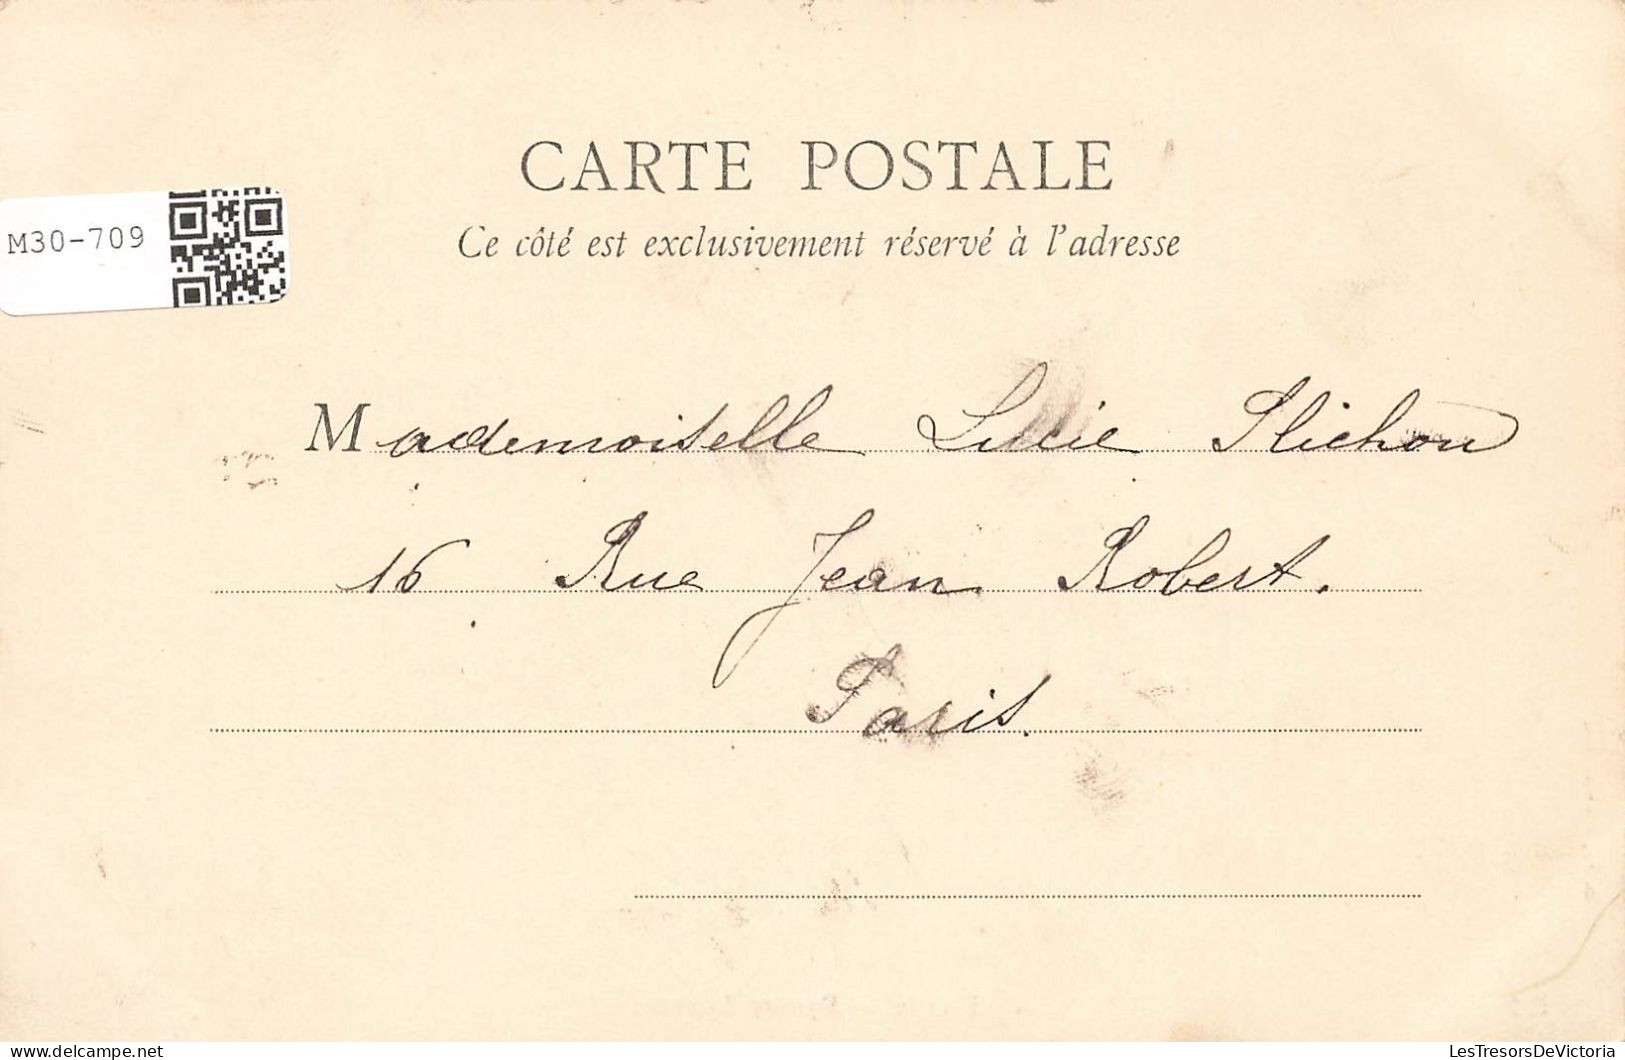 CARTE POSTALE
Ce côté est exclusivement réservé à l'adresse
M30-709
Mademoiselle Lucie Plichon
16 Rue Jean Robert.
Paris.
LesTresorsDeVictoria